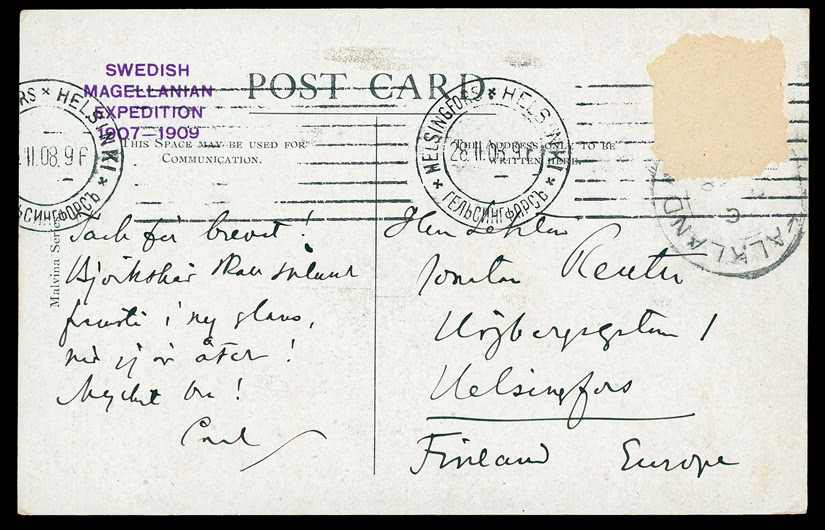 SWEDISH
MAGELLANIAN
EXPEDITION
1907-1909
POST CARD
THIS SPACE MAY BE USED FOR
COMMUNICATION.
THE ADDRESS ONLY TO BE
WRITTEN HERE.
RS * HELSINKI *
.II.08. 9 F
ЬСИНГФОРСЪ
* HELSINGFORS * HELSINKI *
28.II.08. 9
ГЕЛЬСИНГФОРСЪ
FALKLAND
Malvina Series
Tack för brevet!
Björkskär skall
i ny glans,
när vi åter!
Mycket bra!
Carl
Herr Lektor
Jonatan Reuter
Högbergsgatan 1
Helsingfors
Finland Europe